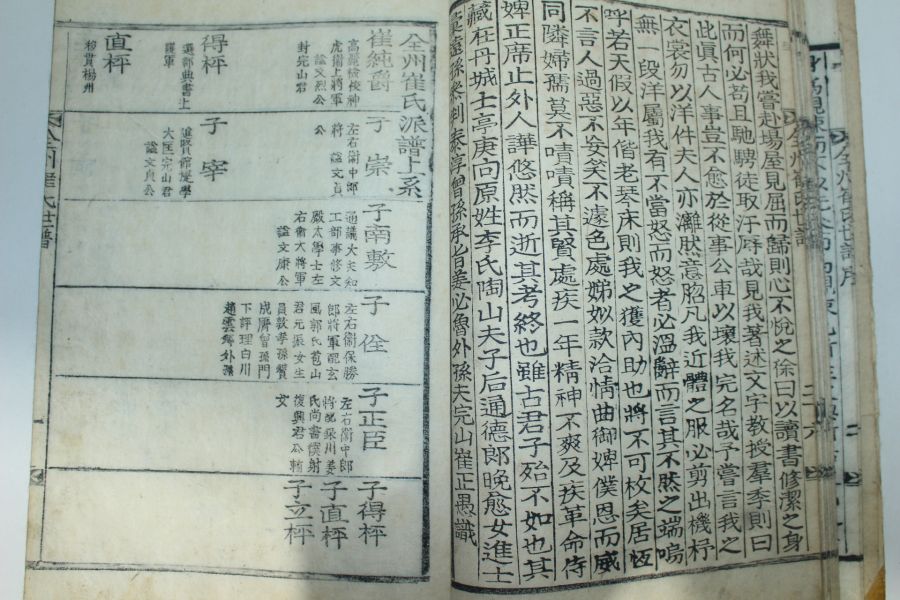 舞狀我嘗赴場屋見屈而歸則心不悅之徐曰以讀書修潔之身
而何必苟且馳騁徒取汙辱哉見我著述文字敎授羣季則曰
此眞古人事豈不愈於從事公車以壞我完名哉予嘗言我之
衣裳勿以洋件夫人亦灘然意脗凡我近體之服必剪出機杼
無一段洋屬我有不當怒而怒者必溫辭而言其不然之端嗚
呼若天假以年偕老琴床則我之獲內助也將不可枚矣居恆
不言人過惡不妄笑不遽色處娣姒款洽情曲御婢僕恩而威
同隣婦孺莫不嘖嘖稱其賢處疾一年精神不爽及疾革命侍
婢正席止外人譁悠然而逝其考終也雖古君子殆不如也其
藏在丹城士亭庚向原姓李氏陶山夫子后通德郎晚愈女進士
遠孫參判泰淳曾孫承旨姜必魯外孫夫完山崔正愚識
全州崔氏派譜上系
崔純爵
高麗檢校神
虎衛上將軍
諡文烈公
封完山君
子崇
左右衛中郎
將 諡文貞
公
子南敷
通議大夫知
工部事修文
殿太學士左
右衛大將軍
諡文康公
子佺
左右衛保勝
郎將軍配玄
風郭氏苞山
君元振女生
員敦孝孫贊
成膺曾孫門
下評理白川
趙雲外孫
子正臣
左右衛中郎
將配晉州姜
氏尚書僕射
復興君公輔
女
子得枰
子直枰
子立枰
得枰
選部典書上
護軍
子宰
進賢館提學
大匡完山君
諡文貞公
直枰
移貫楊州
全州崔氏世譜
全州崔氏世譜序